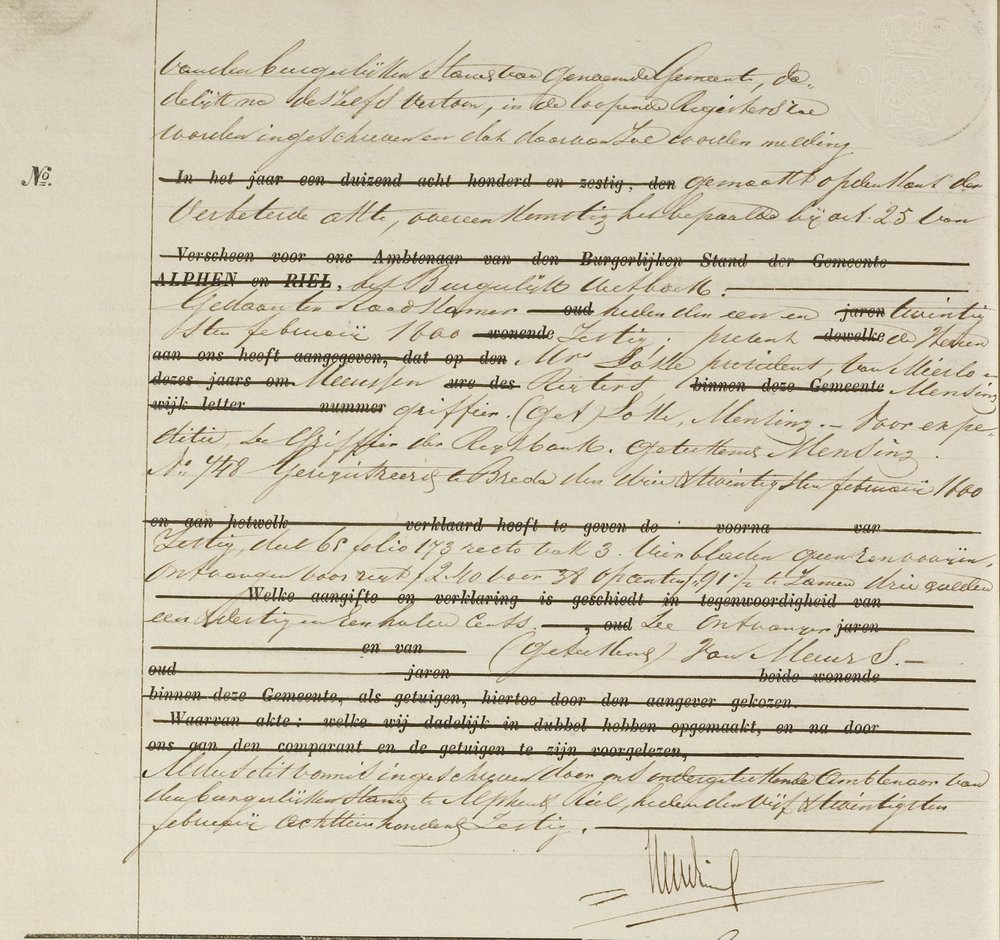 van den burgerlijken Stand van genoemde Gemeente, da-
delijk na deszelfs vertoon, in de loopende Registers zal
worden ingeschreven en dat daarvan zal worden melding
No.
In het jaar een duizend acht honderd en zestig, den gemaakt op den kant der
verbeterde akte, overeenkomstig het bepaalde bij art. 25 van
Verscheen voor ons Ambtenaar van den Burgerlijken Stand der Gemeente
ALPHEN en RIEL, het Burgerlijk Wetboek.
Gedaan ter Raadkamer oud heden den een en jaren twintig
sten februarij 1800 wonende Zestig; present dewelke de Heeren
aan ons heeft aangegeven, dat op den Mr president, van Mierlo en
dezes jaars om Meeussen ure des Regters binnen deze Gemeente Mensing
wijk letter nummer griffier. (Get) Mensing. – Voor expe-
ditie, De Griffier der Regtbank. geteekend Mensing.
No. 748 Geregistreerd te Breda den drie & twintigsten februarij 1800
en aan hetwelk verklaard heeft te geven de voorna van
Zestig, deel 65 folio 173 recto vak 3. Vier bladen geen renvooijen,
Ontvangen voor regt f 2.40 voor 38 opcenten f. 91½ te zamen drie gulden
Welke aangifte en verklaring is geschied in tegenwoordigheid van
een & dertig en Een halve Cents. , oud De Ontvanger jaren
en van (geteekend) Van Meurs. –
oud jaren beide wonende
binnen deze Gemeente, als getuigen, hiertoe door den aangever gekozen.
Waarvan akte: welke wij dadelijk in dubbel hebben opgemaakt, en na door
ons aan den comparant en de getuigen te zijn voorgelezen,
Aldus dit vonnis ingeschreven door ons ondergeteekende Ambtenaar van
den burgerlijken stand te Alphen & Riel, heden den vijf & twintigsten
februarij achttien honderd Zestig.